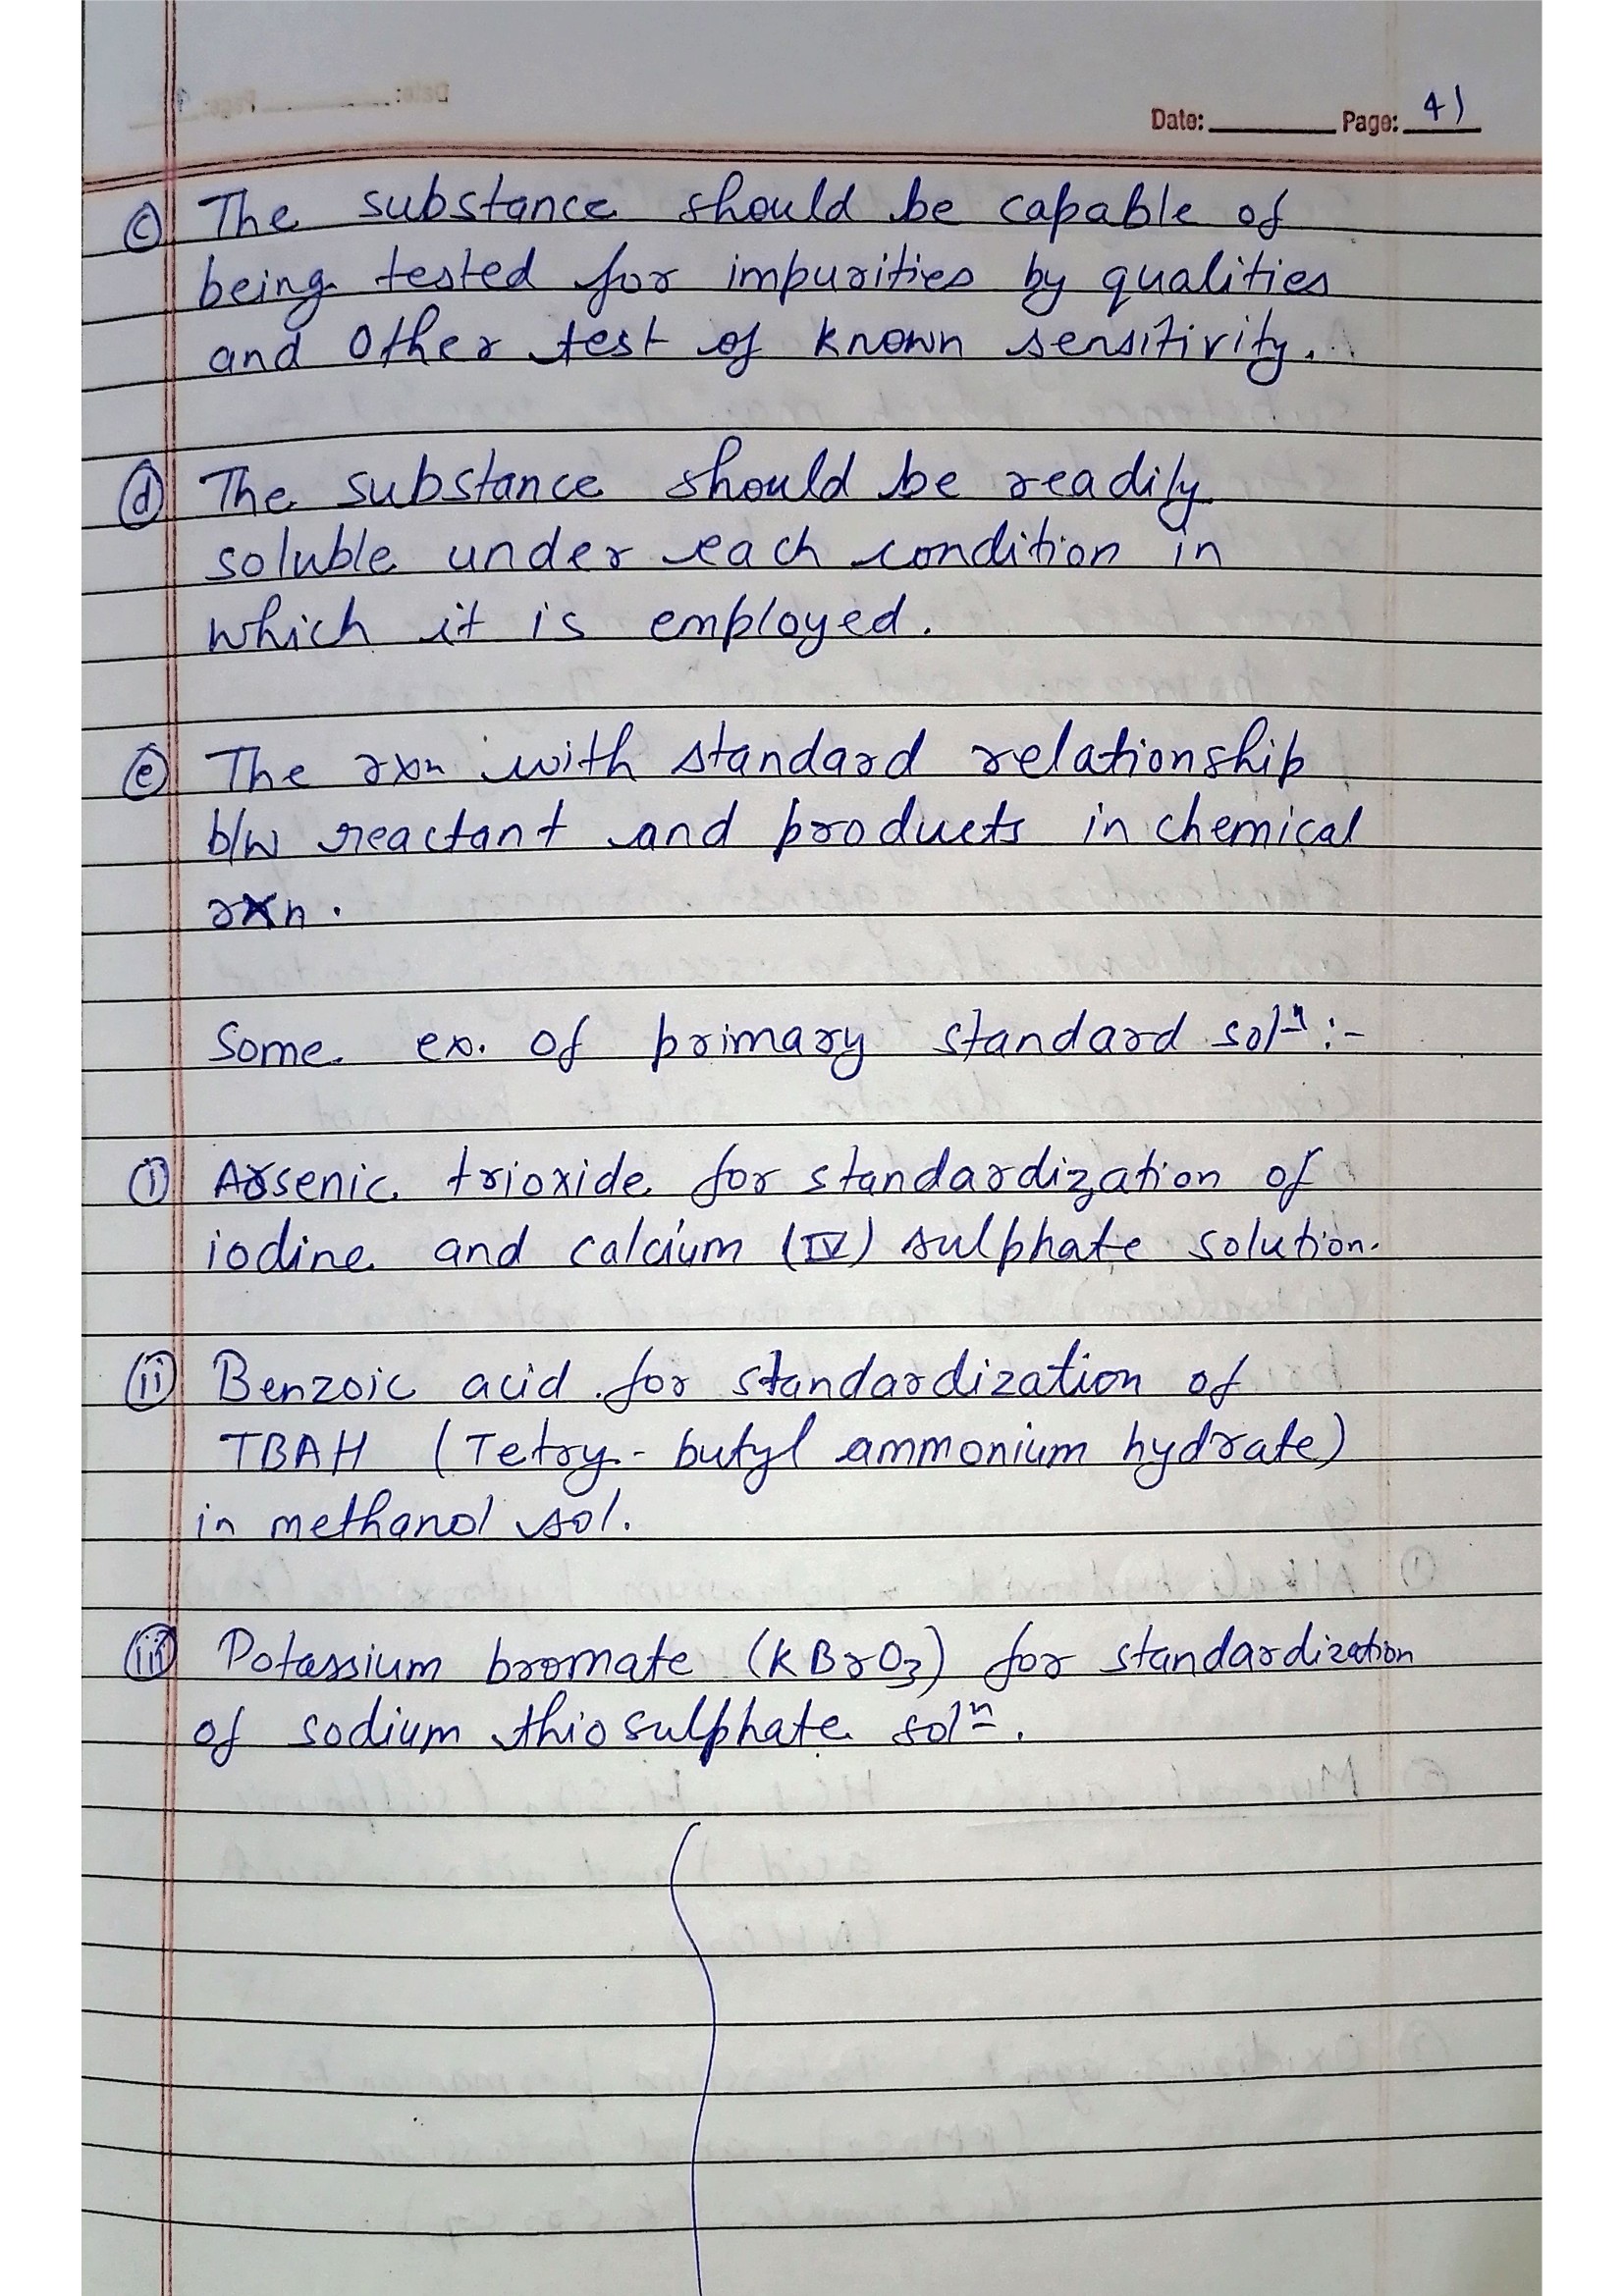 Date: Page: 41
ⓒ The substance should be capable of
being tested for impurities by qualities
and other test of known sensitivity.
ⓓ The substance should be readily
soluble under each condition in
which it is employed.
ⓔ The rxn with standard relationship
b/w reactant and products in chemical
rxn.
Some ex. of primary standard solⁿ :-
ⓘ Arsenic trioxide for standardization of
iodine and calcium (IV) sulphate solution.
(ii) Benzoic acid for standardization of
TBAH (Tetry-butyl ammonium hydrate)
in methanol sol.
(iii) Potassium bromate (KBrO₃) for standardization
of sodium thiosulphate solⁿ.